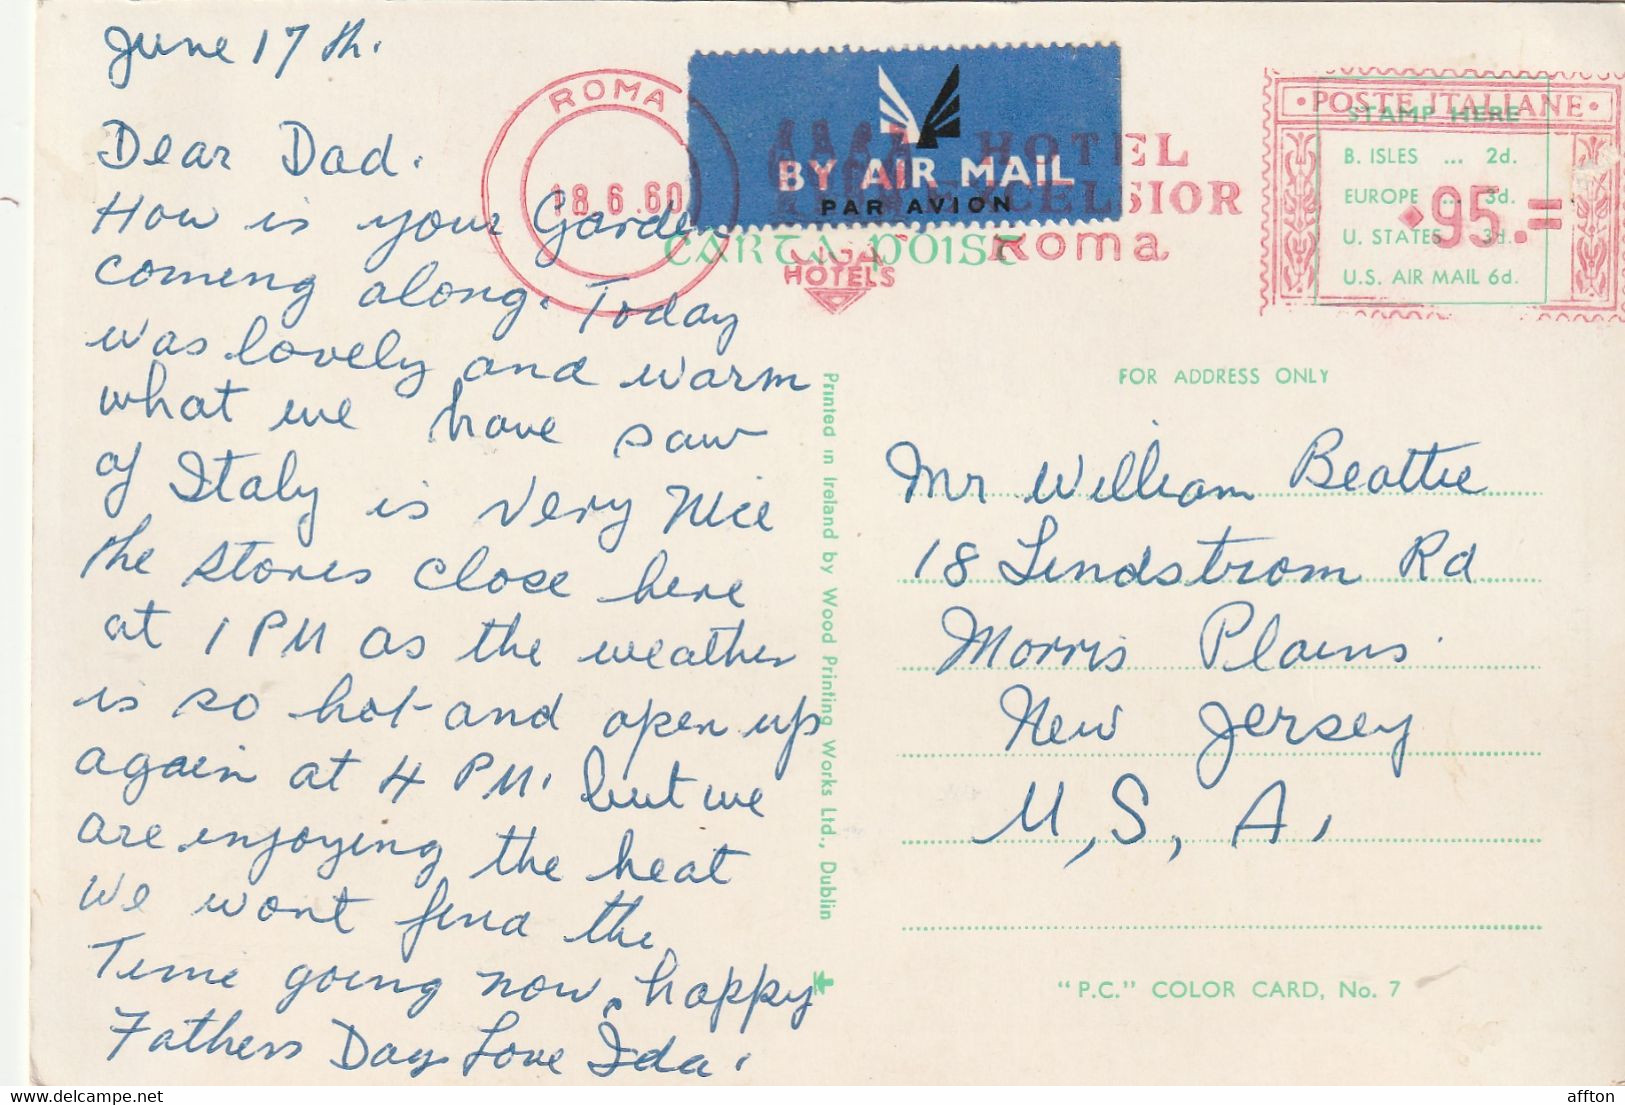 June 17 th.
Dear Dad.
How is your Garden
coming along. Today
was lovely and warm
what we have saw
of Italy is very Nice
the stores close here
at 1 PM as the weather
is so hot and open up
again at 4 PM. but we
are enjoying the heat
We wont find the
Time going now. happy
Fathers Day Love Ida.
ROMA
18.6.60
BY AIR MAIL
PAR AVION
HOTEL
EXCELSIOR
Roma
HOTELS
CARTA POIST
POSTE ITALIANE
STAMP HERE
B. ISLES ... 2d.
EUROPE ... 3d.
U. STATES 3d.
U.S. AIR MAIL 6d.
95.=
FOR ADDRESS ONLY
Mr William Beattie
18 Lindstrom Rd
Morris Plains
New Jersey
U, S, A.
Printed in Ireland by Wood Printing Works Ltd., Dublin
"P.C." COLOR CARD, No. 7
www.delcampe.net
affton